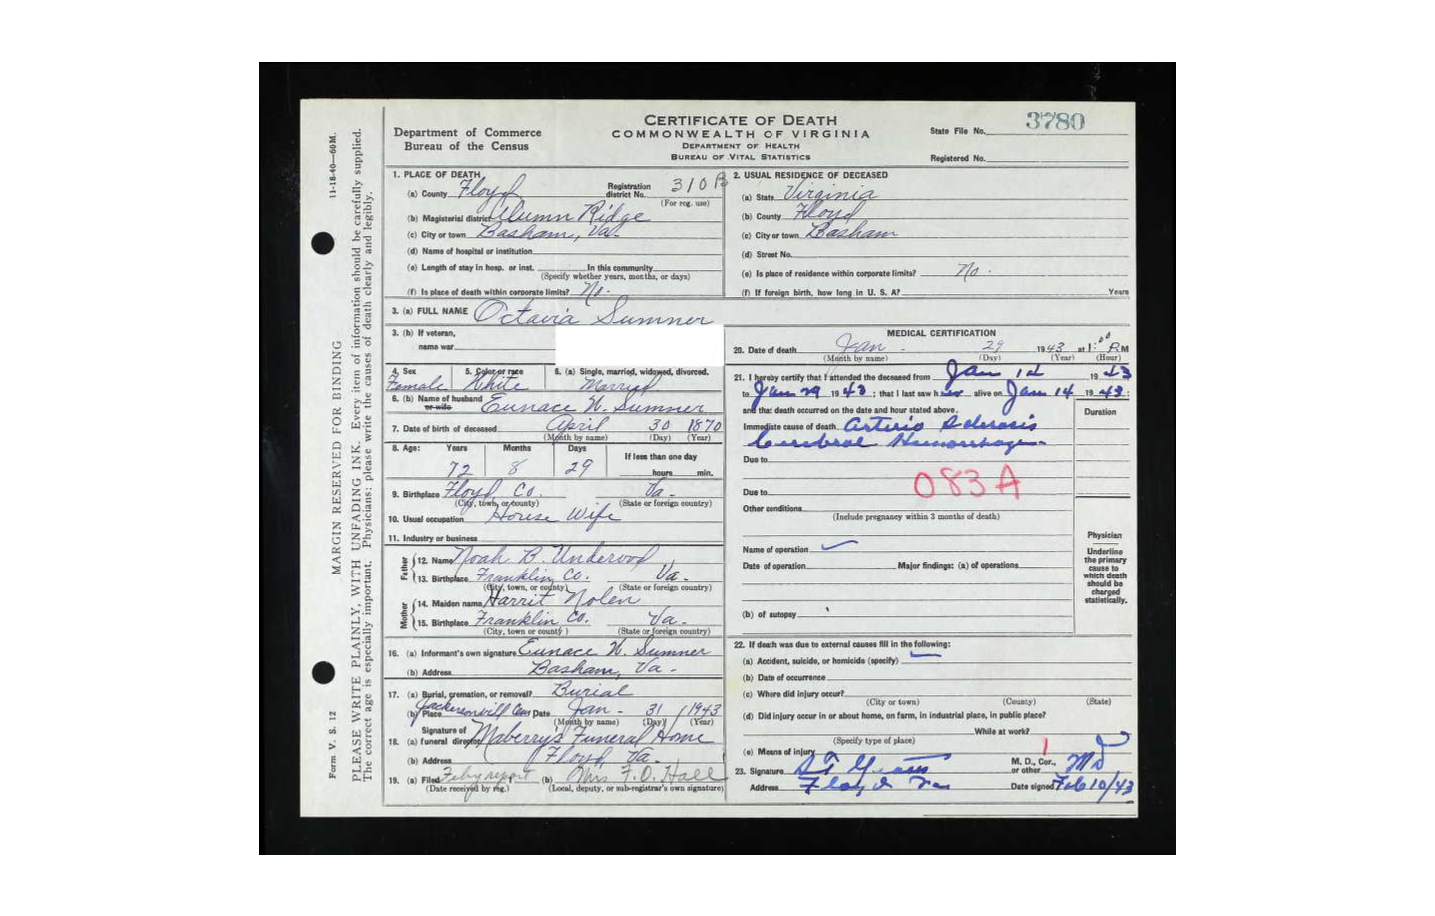 3780
CERTIFICATE OF DEATH
COMMONWEALTH OF VIRGINIA
DEPARTMENT OF HEALTH
BUREAU OF VITAL STATISTICS
Department of Commerce
Bureau of the Census
State File No.
Registered No.
11-18-40—60M.
MARGIN RESERVED FOR BINDING
Form V. S. 12
PLEASE WRITE PLAINLY, WITH UNFADING INK. Every item of information should be carefully supplied.
The correct age is especially important. Physicians: please write the causes of death clearly and legibly.
1. PLACE OF DEATH
(a) County Floyd Registration district No. 310B
(For reg. use)
(b) Magisterial district Alumn Ridge
(c) City or town Basham, Va.
(d) Name of hospital or institution
(e) Length of stay in hosp. or inst. In this community
(Specify whether years, months, or days)
(f) Is place of death within corporate limits? No.
2. USUAL RESIDENCE OF DECEASED
(a) State Virginia
(b) County Floyd
(c) City or town Basham
(d) Street No.
(e) Is place of residence within corporate limits? No.
(f) If foreign birth, how long in U. S. A.? Years
3. (a) FULL NAME Octavia Sumner
3. (b) If veteran,
name war
4. Sex 5. Color or race 6. (a) Single, married, widowed, divorced.
Female White Married
6. (b) Name of husband or wife Eunace W. Sumner
7. Date of birth of deceased April 30 1870
(Month by name) (Day) (Year)
8. Age: Years Months Days If less than one day
72 8 29 hours min.
9. Birthplace Floyd Co. Va.
(City, town, or county) (State or foreign country)
10. Usual occupation House Wife
11. Industry or business
Father
12. Name Noah B. Underwood
13. Birthplace Franklin Co. Va.
(City, town, or county) (State or foreign country)
Mother
14. Maiden name Harrit Nolen
15. Birthplace Franklin Co. Va.
(City, town or county) (State or foreign country)
16. (a) Informant's own signature Eunace W. Sumner
(b) Address Basham, Va.
17. (a) Burial, cremation, or removal? Burial
(b) Place Jackersonvill Cem Date Jan - 31 1943
(Month by name) (Day) (Year)
18. (a) Signature of funeral director Maberry's Funeral Home
(b) Address Floyd, Va.
19. (a) Filed Feby report (b) Mrs F. O. Hall
(Date received by reg.) (Local, deputy, or sub-registrar's own signature)
MEDICAL CERTIFICATION
20. Date of death Jan - 29 1943 at 1:00 P M
(Month by name) (Day) (Year) (Hour)
21. I hereby certify that I attended the deceased from Jan 14 1943
to Jan 29 1943; that I last saw her alive on Jan 14 1943;
and that death occurred on the date and hour stated above. Duration
Immediate cause of death Arterio Sclerosis
Cerebral Hemorrhage
Due to
083A
Due to
Other conditions
(Include pregnancy within 3 months of death)
Name of operation
Date of operation Major findings: (a) of operations
(b) of autopsy
Physician
Underline
the primary
cause to
which death
should be
charged
statistically.
22. If death was due to external causes fill in the following:
(a) Accident, suicide, or homicide (specify)
(b) Date of occurrence
(c) Where did injury occur?
(City or town) (County) (State)
(d) Did injury occur in or about home, on farm, in industrial place, in public place?
While at work?
(Specify type of place)
(e) Means of injury
23. Signature M. D., Cor., or other MD
Address Floyd Va Date signed Feb 10/43